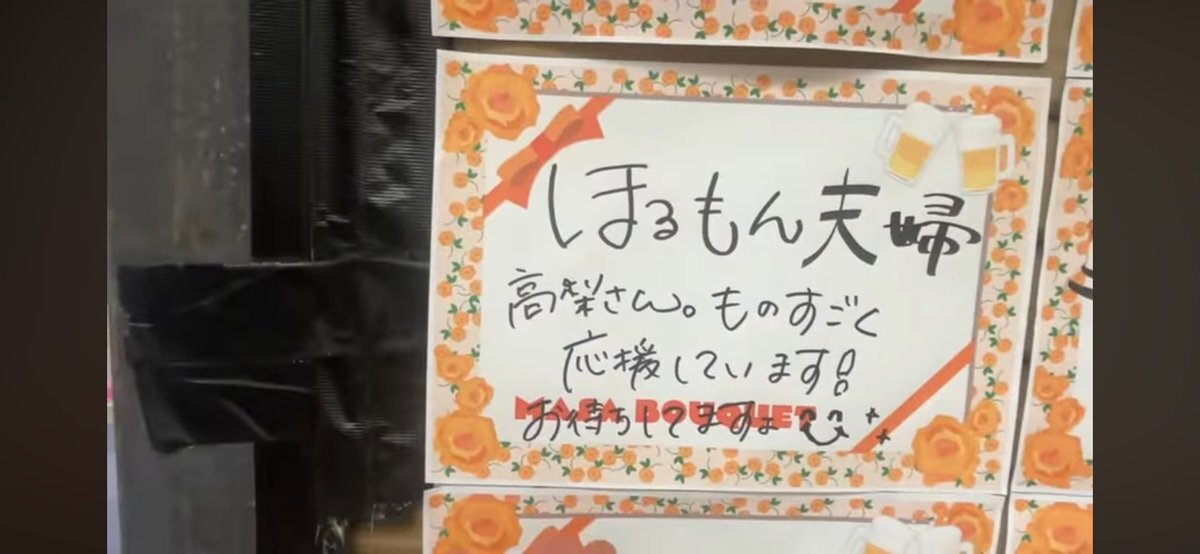 ほるもん夫婦
高梨さん。ものすごく
応援しています!
MASA BOUQUET
お待ちしてますよ